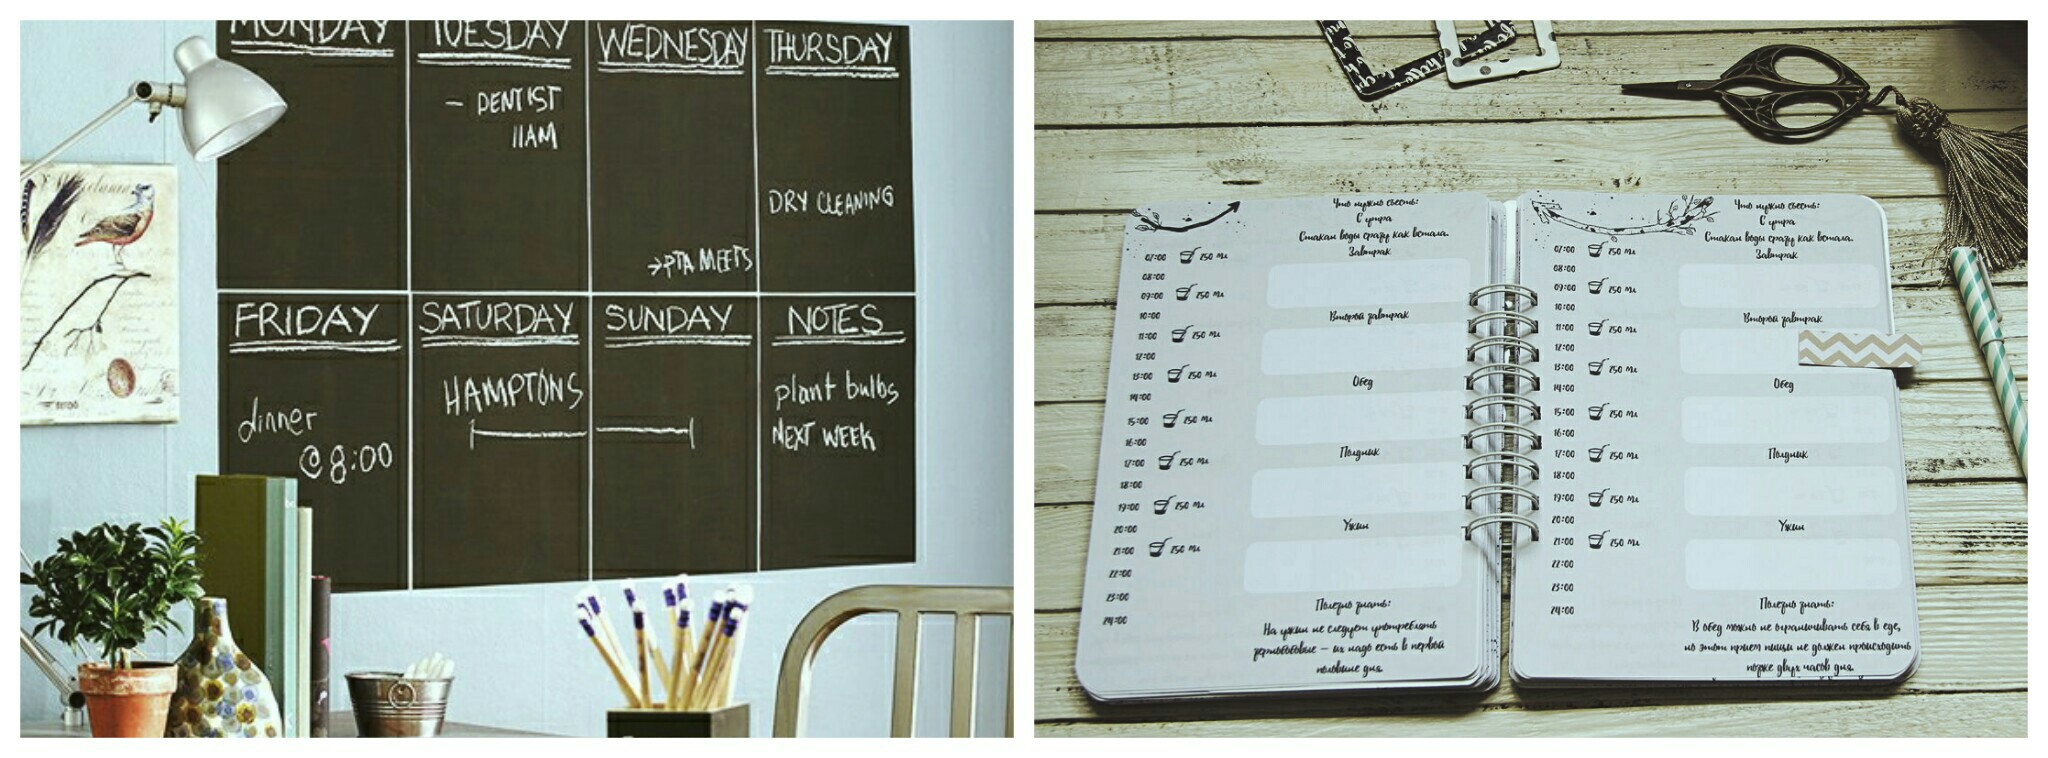 MONDAY
TUESDAY
WEDNESDAY
THURSDAY
- DENTIST
11AM
DRY CLEANING
→PTA MEETS
FRIDAY
SATURDAY
SUNDAY
NOTES
dinner
@ 8:00
HAMPTONS
plant bulbs
NEXT WEEK
Что нужно съесть:
С утра
Стакан воды сразу как встала.
Завтрак
Второй завтрак
Обед
Полдник
Ужин
Полезно знать:
На ужин не следует употреблять
зернобобовые – их надо есть в первой
половине дня.
07:00 250 мл
08:00
09:00 250 мл
10:00
11:00 250 мл
12:00
13:00 250 мл
14:00
15:00 250 мл
16:00
17:00 250 мл
18:00
19:00 250 мл
20:00
21:00 250 мл
22:00
23:00
24:00
Что нужно съесть:
С утра
Стакан воды сразу как встала.
Завтрак
Второй завтрак
Обед
Полдник
Ужин
Полезно знать:
В обед можно не ограничивать себя в еде,
но этот прием пищи не должен происходить
позже двух часов дня.
07:00 250 мл
08:00
09:00 250 мл
10:00
11:00 250 мл
12:00
13:00 250 мл
14:00
15:00 250 мл
16:00
17:00 250 мл
18:00
19:00 250 мл
20:00
21:00 250 мл
22:00
23:00
24:00